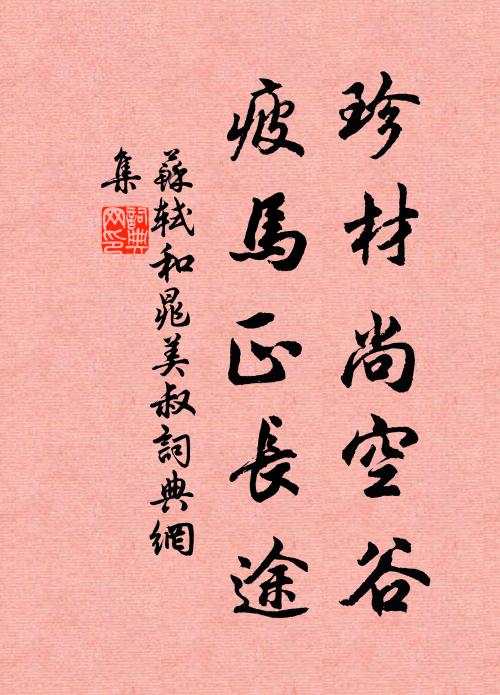 珍材尚空谷
疲馬正長途
蘇軾和晁美叔詞典網
集
詞典
网印